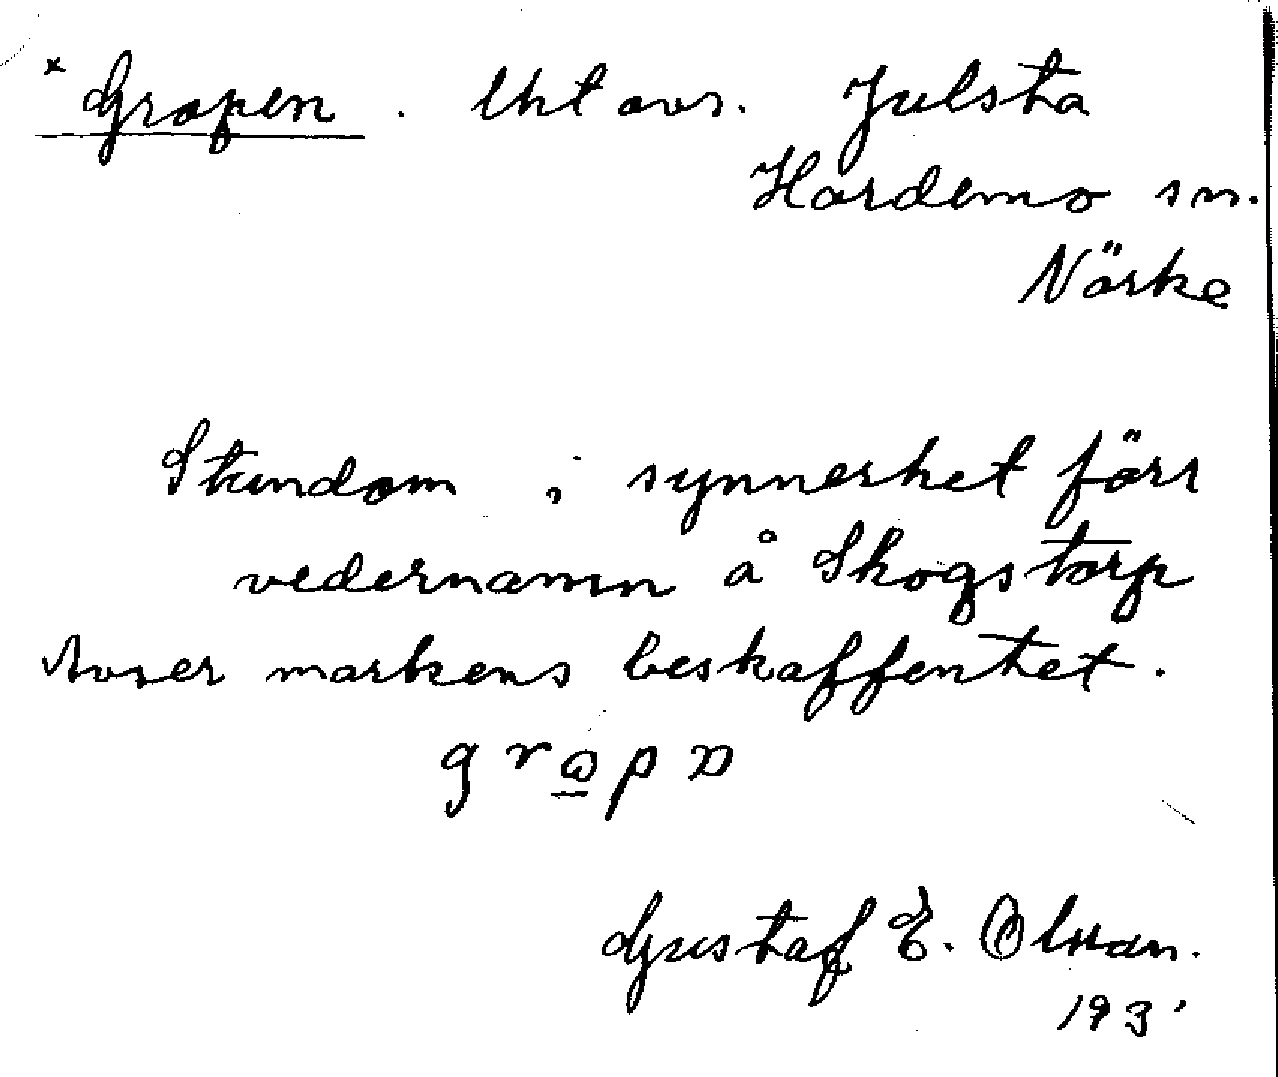 × Gropen. Uht avs. Julsta
Hardemo sn.
Närke
Stundom, i synnerhet förr
vedernamn å Skogstorp
Avser markens beskaffenhet.
Gustaf E. Olsson.
193